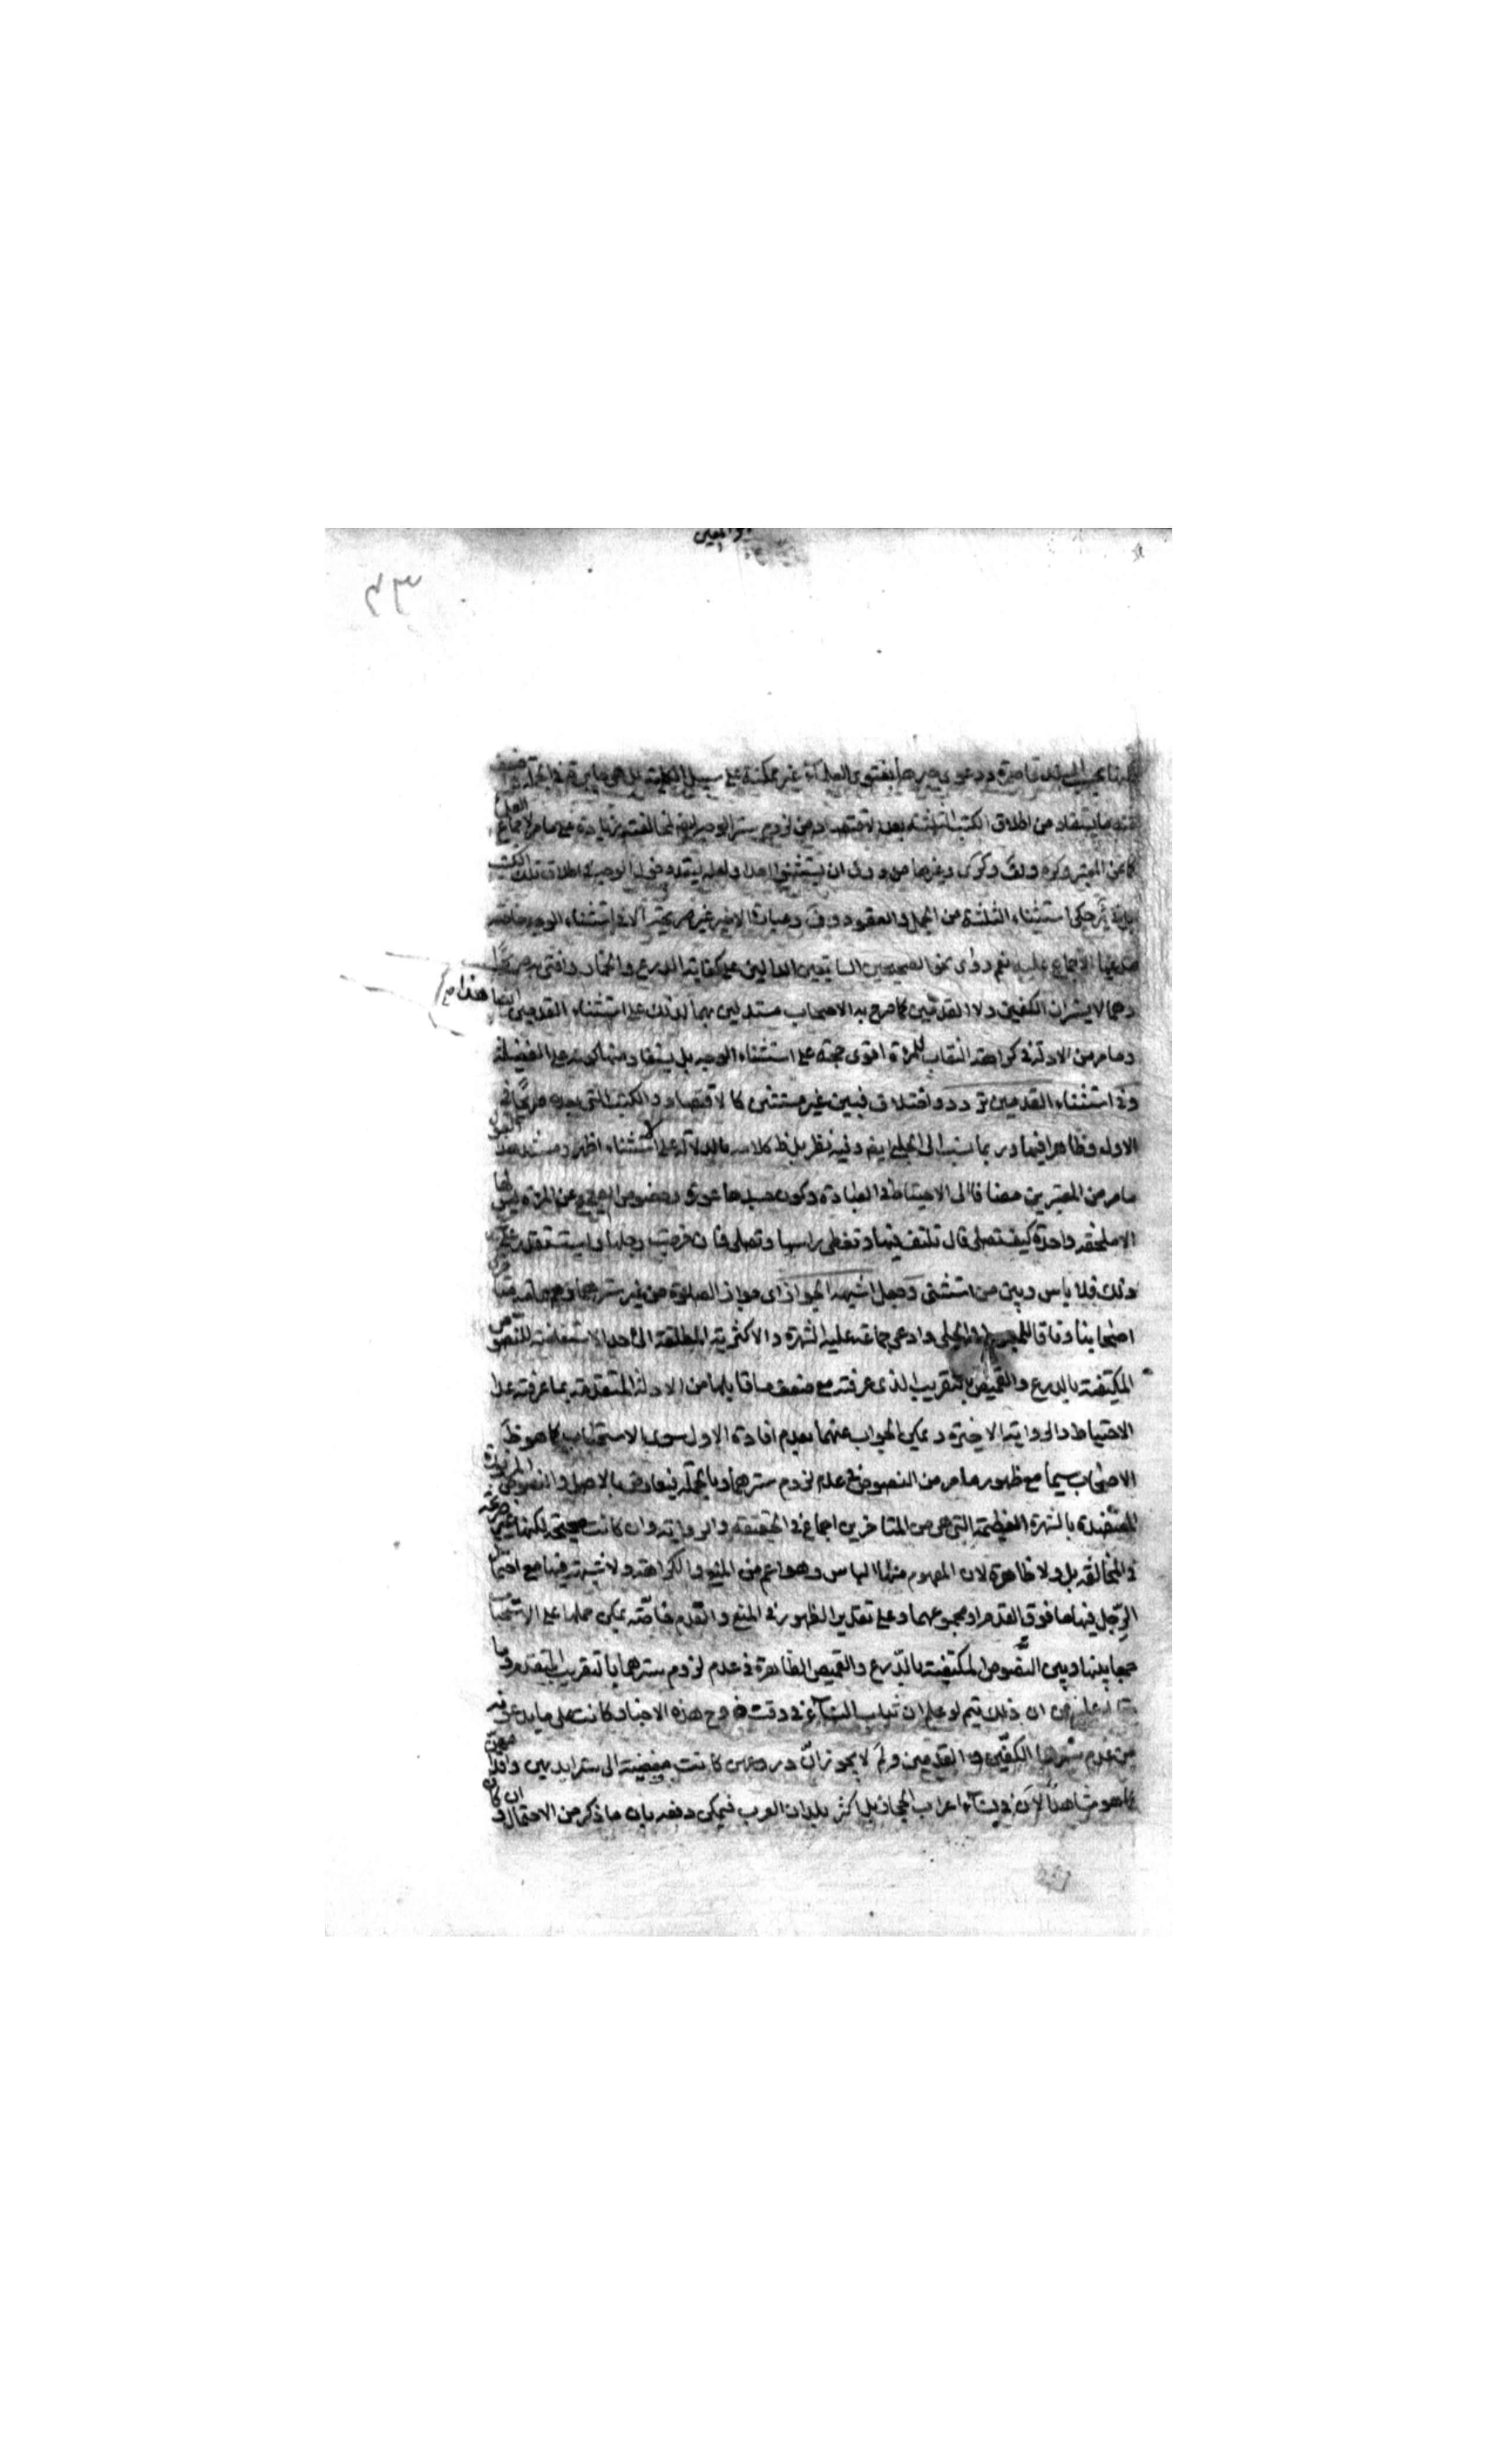 بحسب السند قاصرة ودعوى جبرها بفتوى العلماء غير ممكنة على سبيل الكلية بل هي جابرة في الجملة
ما يستفاد من اطلاق الكتب الثلثة بعد الاقتصاد من لزوم ستر الوجه ايضا لمخالفته زيادة على ما مر لاجماع العلماء
كما عن المعتبر وكره ولف وكرى وغيرها من دون ان يستثنوا احدا ولعله لبعد دخول الوجه في اطلاق تلك الكتب
حكى استثناء الثلثة من الجمل والعقود وعبارة الاخير غير صريحة الا في استثناء الوجه خاصة
مدعيا الاجماع عليه نعم روى نحو الصحيحين السابقين الدالين على كفاية الدرع والخمار وافتى به صريحا
وهما لا يستران الكفين ولا القدمين كما صرح به الاصحاب مستدلين بهما لذلك على استثناء القدمين ايضا هذا مع
وما مر من الادلة في كراهة النقاب للمرءة اقوى حجة على استثناء الوجه بل يستفاد منها كونه على الفضيلة
وفي استثناء القدمين تردد واختلاف فبين غير مستثنى كالاقتصاد والكتب التي بعده صريحا في
الاول وظاهرا فيما وربما ينسب الى الحلبي ايضا وفيه نظر بل ظ كلامه بالدلالة على الاستثناء اظهر ومستند هذا القول
ما مر من المعتبرين مضافا الى الاحتياط في العبادة وكون جسدها عورة وخصوص الصحيح عن المرءة ليس لها
الا ملحفة واحدة كيف تصلى قال تلتف فيها وتغطى راسها وتصلى فان خرجت رجلها وليست تقدر على غير
ذلك فلا باس وبين من استثنى وجعل اشبهه الجواز اى جواز الصلوة من غير سترهما وهم عامة متاخرى
اصحابنا وفاقا للمبسوط والحلى وادعى جماعة عليه الشهرة والاكثرية المطلقة الى احد الاستفاضة للنصوص
المكتفية بالدرع والقميص بالتقريب الذى عرفته مع ضعف ما قابلها من الادلة المتقدمة بما عرفته عدا
الاحتياط والرواية الاخيرة ويمكن الجواب عنهما بعدم افادة الاول سوى الاستحباب كما هو ظ
الاصحاب سيما مع ظهور ما مر من النصوص في عدم لزوم سترهما وبالجملة فيعارض بالاصل والنصوص المزبورة
المعتضدة بالشهرة العظيمة التي هي من المتاخرين اجماع في الحقيقة والرواية وان كانت صحيحة لكنها غير صريحة
في المخالفة بل ولا ظاهرة لان المفهوم منها الباس وهو اعم من المنع والكراهة ولا شبهة فيها مع احتمال
الرجل فيها ما فوق القدم او مجموعهما وعلى تقدير الظهور في المنع والقدم خاصة يمكن حملها على الاستحباب
جمعا بينها وبين النصوص المكتفية بالدرع والقميص الظاهرة في عدم لزوم سترهما بالتقريب المتقدم وما
يقال عليه من ان ذلك يتم لو علم ان ثياب النساء في وقت خروج هذه الاخبار كانت على ما يدعونه
من عدم سترها الكفين و القدمين ولم لا يجوز ان دروعهن كانت مفضية الى ستر ايديهن واقدامهن
كما هو مشاهد الان في نساء اعراب الحجاز بل اكثر بلدان العرب فيمكن دفعه بان ما ذكر من الاحتمال وان كان